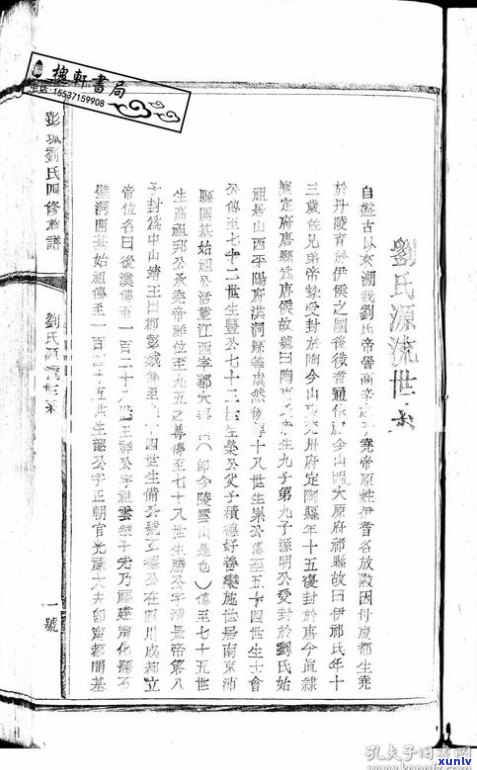 槐軒書局
電话:15537159908
彭城劉氏四修族譜
劉氏源流世系
一號
劉氏源流世系
自盤古以來溯我劉氏帝嚳高辛 堯帝原姓伊耆名放勳因母慶都生堯
於丹陵育於伊候之國後徙耆 今山西太原府祁縣故曰伊祁氏年十
三歲佐兄帝摯受封於陶今山東兗州府定陶縣年十五復封於唐今真隸
真定府唐縣為唐侯故號曰陶唐 生九子第九子源明公受封於劉氏始
祖居山西平陽府洪洞縣 然後傳十八世生累公傳至五十四世生士會
公傳至七十二世生豐公七十三世生榮公父子積德好善樂施世居南京沛
縣開基始祖公 江西寧都大 （即今陵雲山是也）傳至七十五世
生商祖邦公承秦帝祚位至九五之尊傳至七十八世生勝公字清景帝第八
子封為中山靖王曰郡彭城 十四世生備公號玄德公在四川成都立
帝位名曰後漢傳至一百二十八世生祥公字祖雲 子先乃福建寧化縣石
壁洞開基始祖傳至一百四十五世生韶公字正朝官光祿大夫 寧都開基
孔夫子旧书网
xunlv